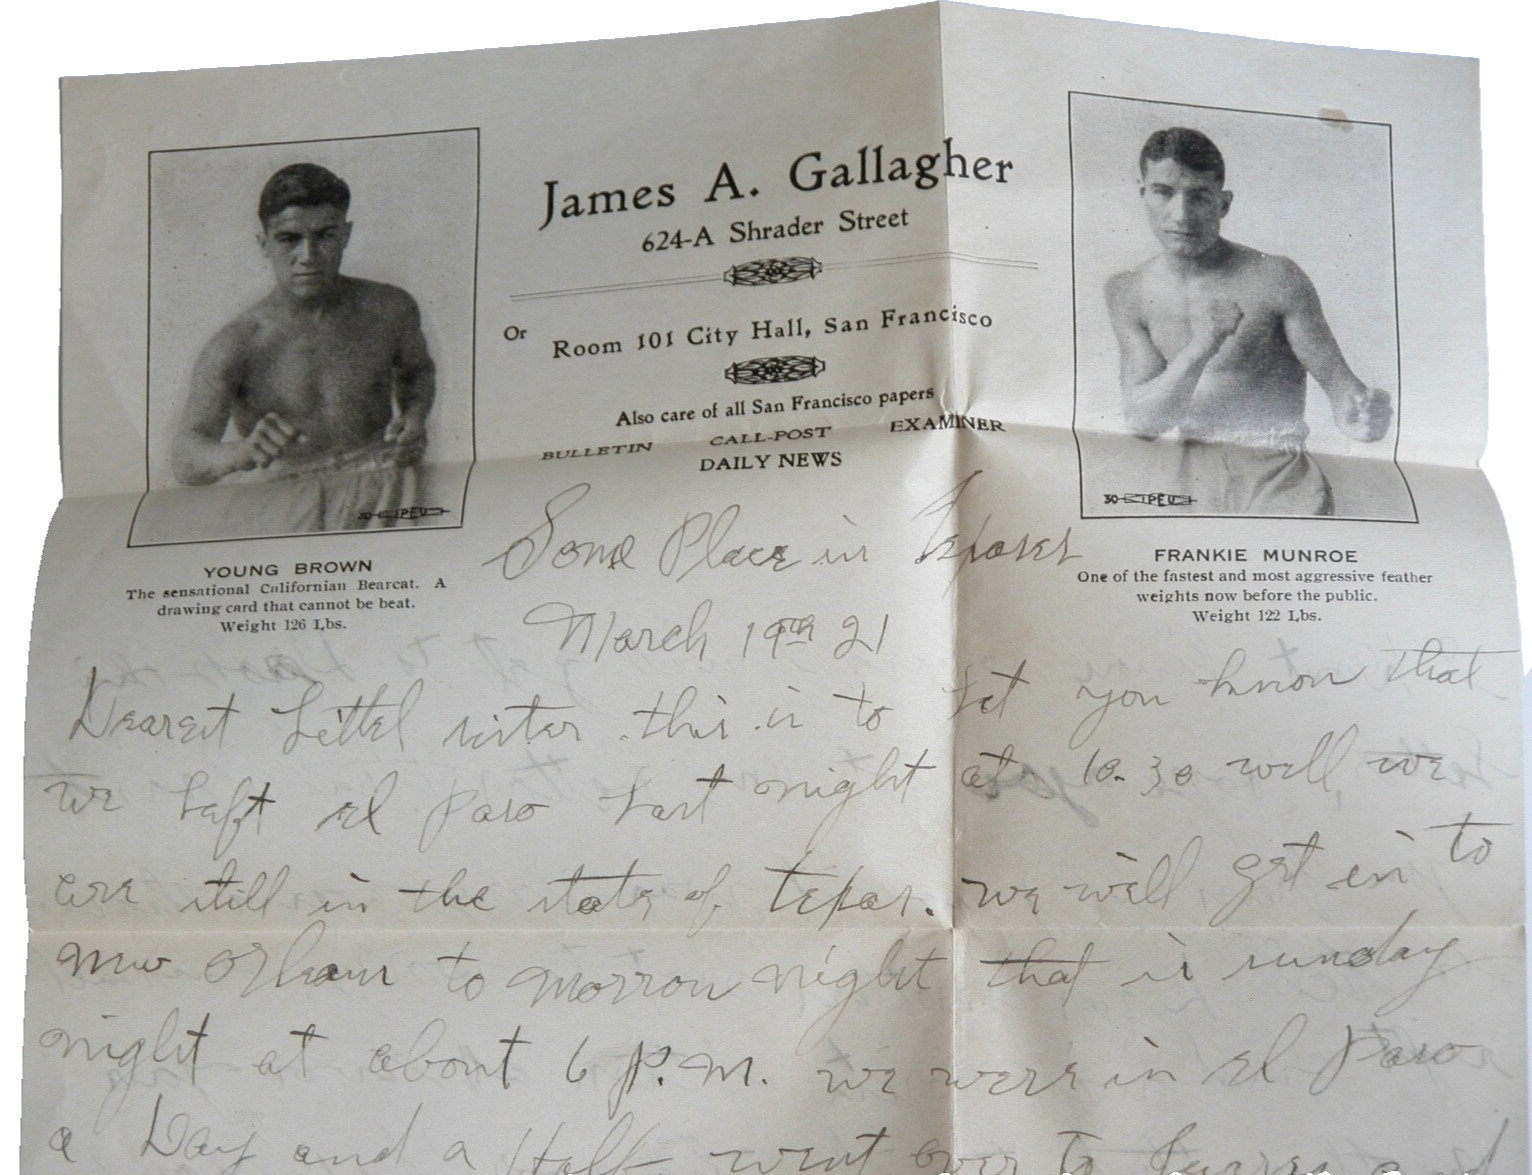 James A. Gallagher
624-A Shrader Street
Or
Room 101 City Hall, San Francisco
Also care of all San Francisco papers
BULLETIN CALL-POST EXAMINER
DAILY NEWS
YOUNG BROWN
The sensational Californian Bearcat. A
drawing card that cannot be beat.
Weight 126 Lbs.
FRANKIE MUNROE
One of the fastest and most aggressive feather
weights now before the public.
Weight 122 Lbs.
Some Place in
March 19th 21
Dearest Littel sister this is to Let you know that
we Left el paso Last night at 10.30 well, we
are still in the state of texas. we will get in to
new orleans to morrow night that is sunday
night at about 6 P.M. we were in el Paso
a Day and a Half went over to